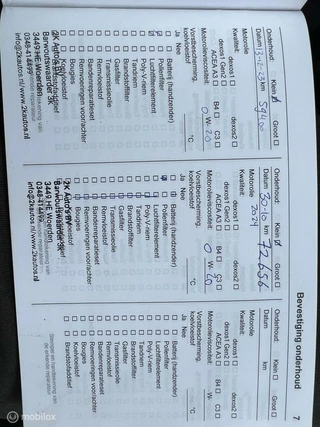 Bevestiging onderhoud 7
Onderhoud: Klein Groot
Datum 13-12-23 km
Motorolie
Kwaliteit:
dexos1 dexos2
dexos1 Gen2
ACEA A3 B4 C3
Motorolieviscositeit: 0 W-20
Vorstbescherming
koelvloeistof °C
Ja Nee
Batterij (handzender)
Pollenfilter
Luchtfilterelement
Poly-V-riem
Tandriem
Brandstoffilter
Gasfilter
Transmissieolie
Remvloeistof
Bandenreparatieset
Remvoeringen voor/achter
Bougies
Koelvloeistof
2K Auto's B.V.
Barwoutswaarder 3K
3449 HE Woerden
0348-414899
info@2kautos.nl www.2kautos.nl
Onderhoud: Klein Groot
Datum 30-10 km 72656
Motorolie 2024
Kwaliteit:
dexos1 dexos2
dexos1 Gen2
ACEA A3 B4 C3
Motorolieviscositeit: 0 W-
Vorstbescherming
koelvloeistof °C
Ja Nee
Batterij (handzender)
Pollenfilter
Luchtfilterelement
Poly-V-riem
Tandriem
Brandstoffilter
Gasfilter
Transmissieolie
Remvloeistof
Bandenreparatieset
Remvoeringen voor/achter
Bougies
2K Auto's B.V.
Barwoutswaarder 3K
3449 HE Woerden
0348-414899
info@2kautos.nl www.2kautos.nl
Onderhoud: Klein Groot
Datum km
Motorolie
Kwaliteit:
dexos1 dexos2
dexos1 Gen2
ACEA A3 B4 C3
Motorolieviscositeit: W-
Vorstbescherming
koelvloeistof °C
Ja Nee
Batterij (handzender)
Pollenfilter
Luchtfilterelement
Poly-V-riem
Tandriem
Brandstoffilter
Gasfilter
Transmissieolie
Remvloeistof
Bandenreparatieset
Remvoeringen voor/achter
Bougies
Koelvloeistof
Brandstofadditief
Stempel en handtekening van
de erkende reparateur
mobilox